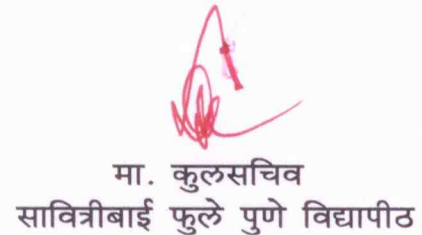 मा. कुलसचिव
सावित्रीबाई फुले पुणे विद्यापीठ